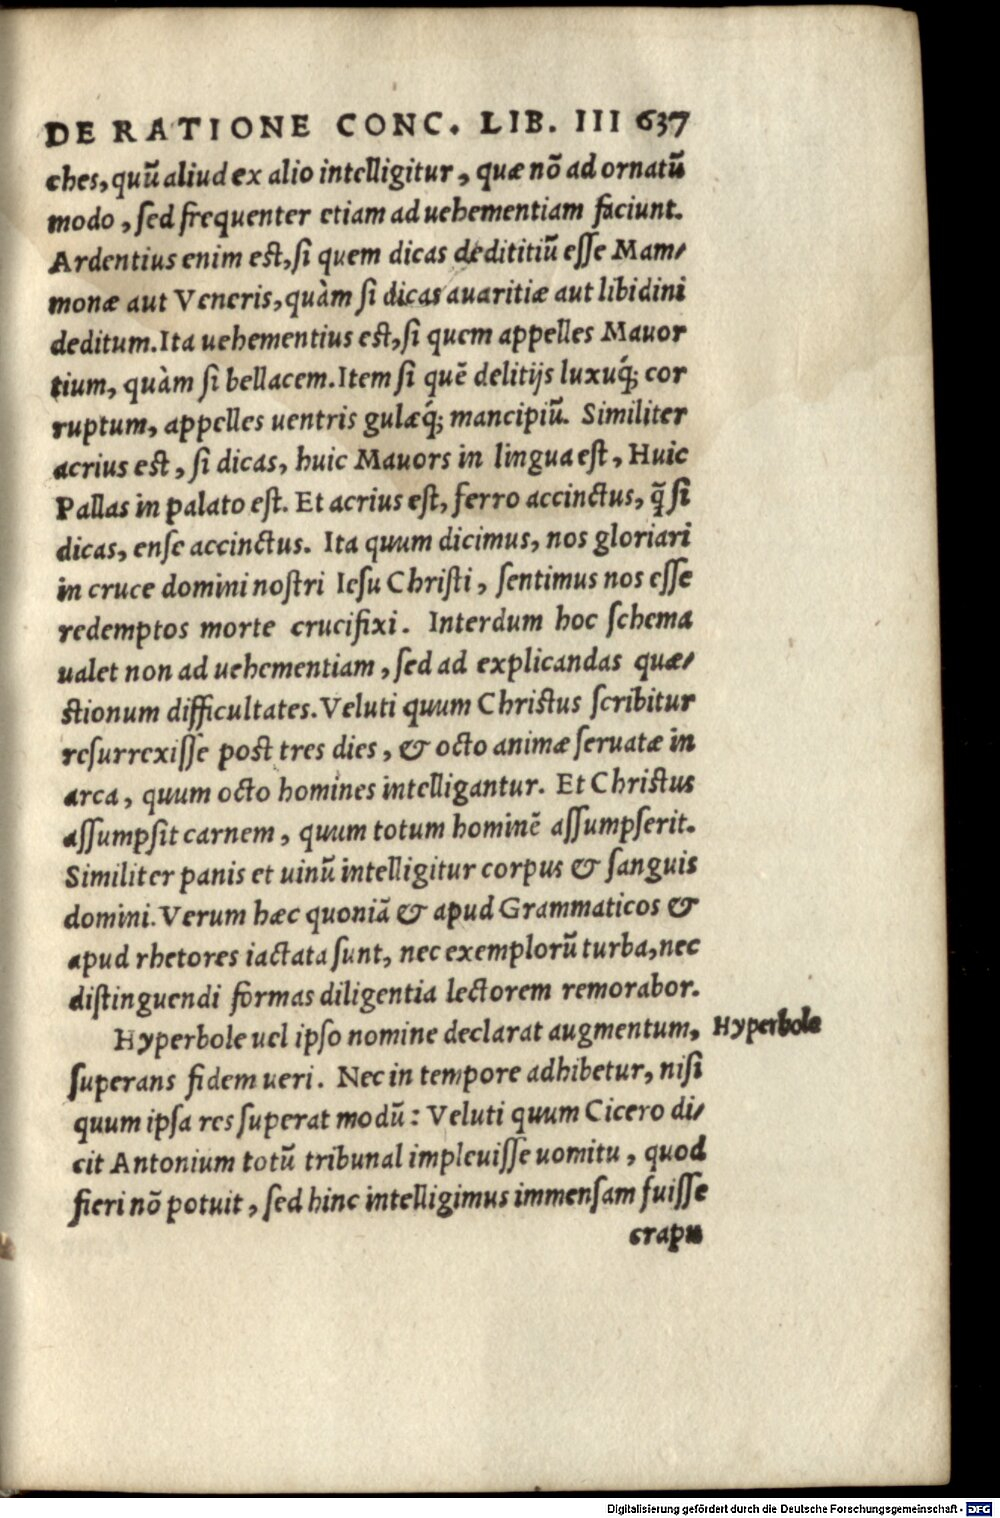 DE RATIONE CONC. LIB. III 637
ches, quū aliud ex alio intelligitur, quæ nō ad ornatū
modo, ſed frequenter etiam ad uehementiam faciunt.
Ardentius enim eſt, ſi quem dicas dedititiū eſſe Mam⸗
monæ aut Veneris, quàm ſi dicas auaritiæ aut libidini
deditum. Ita uehementius eſt, ſi quem appelles Mauor
tium, quàm ſi bellacem. Item ſi quē delitijs luxuq́; cor
ruptum, appelles uentris gulæq́; mancipiū. Similiter
acrius est, ſi dicas, huic Mauors in lingua eſt, Huic
Pallas in palato eſt. Et acrius eſt, ferro accinctus, q̄ ſi
dicas, enſe accinctus. Ita quum dicimus, nos gloriari
in cruce domini noſtri Ieſu Chriſti, ſentimus nos eſſe
redemptos morte crucifixi. Interdum hoc ſchema
ualet non ad uehementiam, ſed ad explicandas quæ⸗
ſtionum difficultates. Veluti quum Chriſtus ſcribitur
reſurrexiſſe poſt tres dies, & octo animæ ſeruatæ in
arca, quum octo homines intelligantur. Et Chriſtus
aſſumpſit carnem, quum totum hominē aſſumpſerit.
Similiter panis et uinū intelligitur corpus & ſanguis
domini. Verum hæc quoniā & apud Grammaticos &
apud rhetores iactata ſunt, nec exemplorū turba, nec
diſtinguendi formas diligentia lectorem remorabor.
Hyperbole uel ipſo nomine declarat augmentum, Hyperbole
ſuperans fidem ueri. Nec in tempore adhibetur, niſi
quum ipſa res ſuperat modū: Veluti quum Cicero di⸗
cit Antonium totū tribunal impleuiſſe uomitu, quod
fieri nō potuit, ſed hinc intelligimus immenſam fuiſſe
crapu
Digitalisierung gefördert durch die Deutsche Forschungsgemeinschaft - DFG